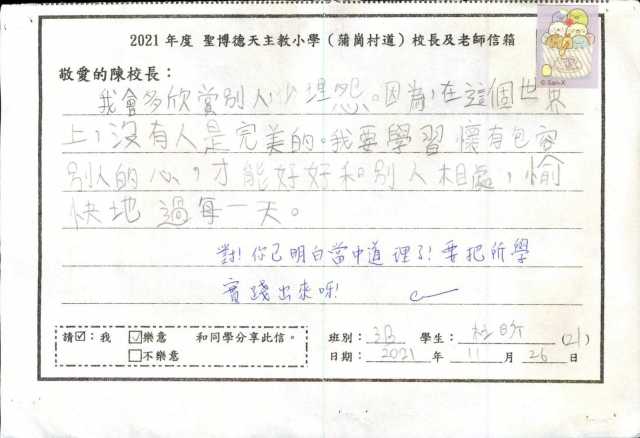 2021 年度 聖博德天主教小學（蒲崗村道）校長及老師信箱
敬愛的陳校長：
我會多欣賞別人，少埋怨。因為，在這個世界
上，沒有人是完美的。我要學習懷有包容
別人的心，才能好好和別人相處，愉
快地過每一天。
對！你已明白當中道理了！要把所學
實踐出來呀！
請☑：我 ☑樂意 和同學分享此信。
□不樂意
班別：3B 學生： (21)
日期：2021 年 11 月 26 日